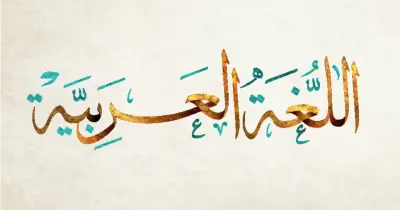 اللُّغَةُ العَرَبِيَّةُ